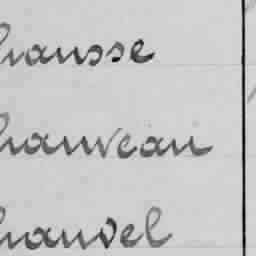 hausse
hauveau
hauvel